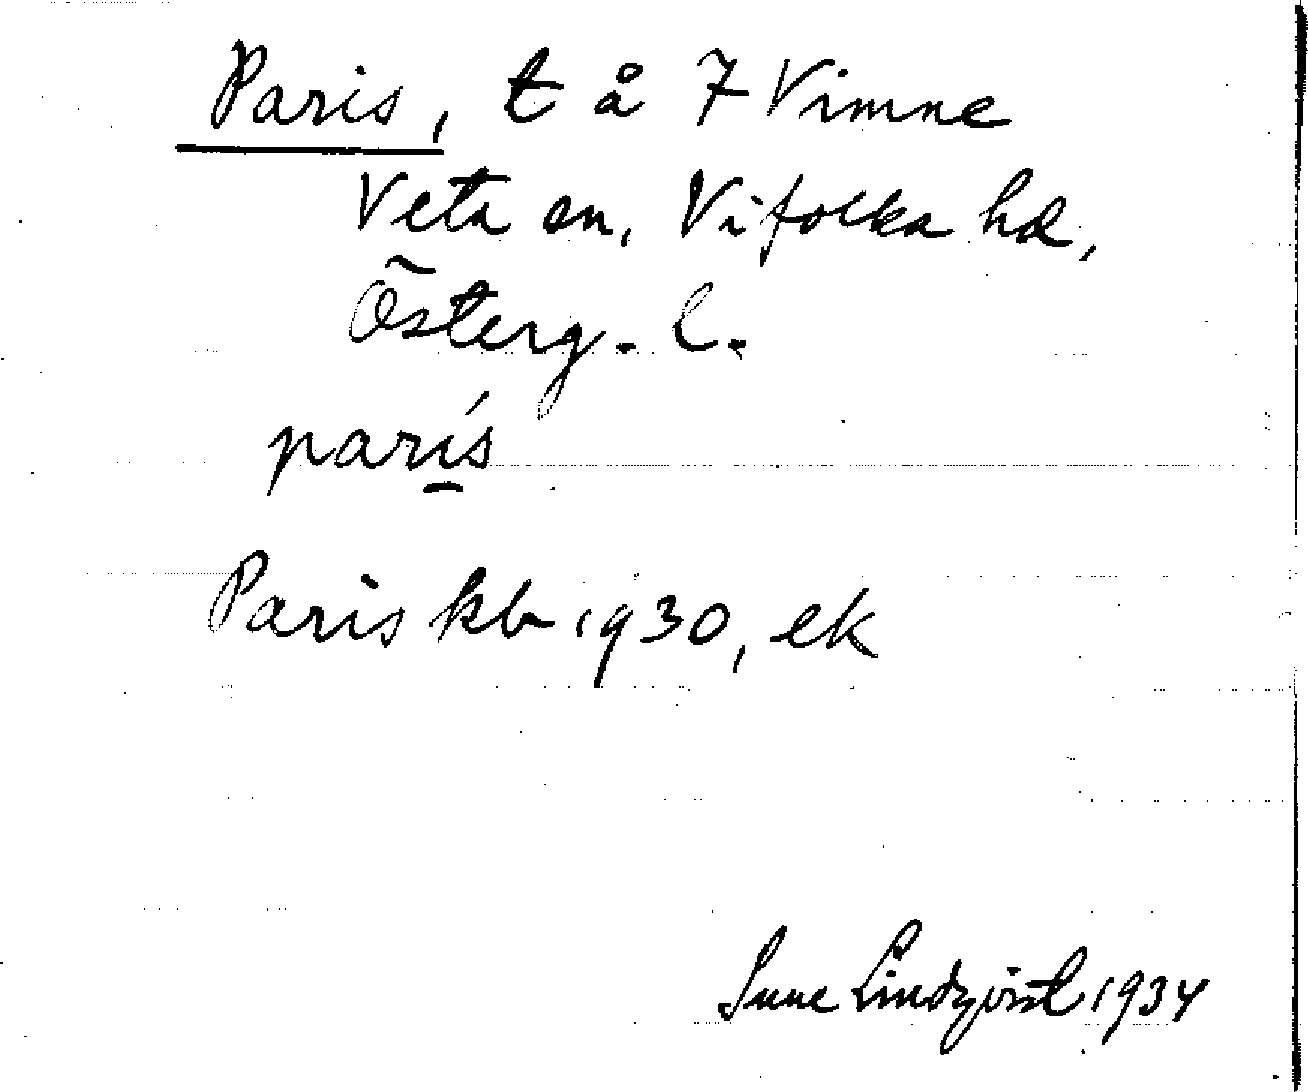 Paris, t å 7 Vimne
Veta sn, Vifolka hd,
Österg. l.
parís
Paris kb 1930, ek
Sune Lindqvist 1934